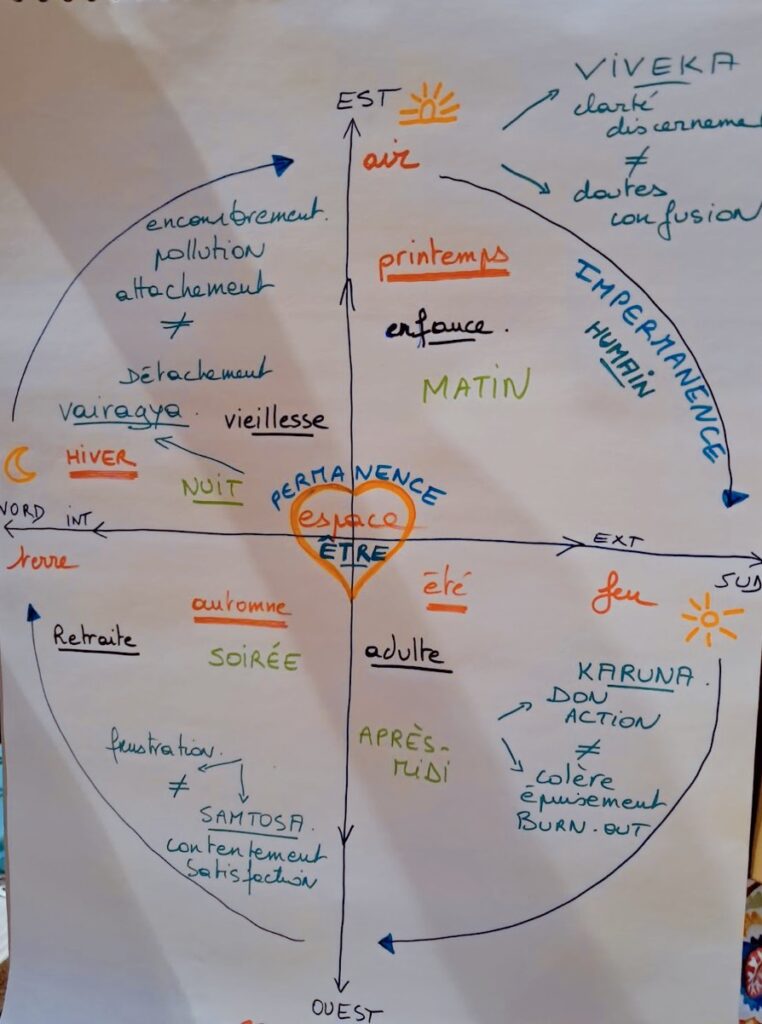 EST
air
VIVEKA
clarté
discerneme
≠
doutes
confusion
encombrement.
pollution
attachement
≠
Détachement
vairagya.
vieillesse
HIVER
NUIT
printemps
enfance.
MATIN
IMPERMANENCE
HUMAIN
PERMANENCE
espace
ÊTRE
NORD
INT
EXT
SUD
terre
automne
Retraite
SOIRÉE
été
feu
adulte
APRÈS-
MIDI
KARUNA.
DON
ACTION
≠
colère
épuisement
BURN-OUT
frustration.
≠
SAMTOSA.
contentement
satisfaction
OUEST